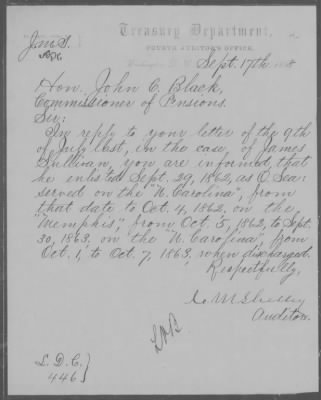 J.M.S.
Treasury Department,
FOURTH AUDITOR'S OFFICE,
Washington, D. C., Sept. 17th, 188
Hon. John C. Black,
Commissioner of Pensions.
Sir:
In reply to your letter of the 9th
of July last, in the case of James
Sullivan, you are informed that
he enlisted Sept. 29, 1862, as O. Sea:
served on the "N. Carolina", from
that date to Oct. 4, 1862, on the
"Memphis", from Oct. 5, 1862, to Sept.
30, 1863, on the "N. Carolina", from
Oct. 1, to Oct. 7, 1863, when discharged.
Respectfully,
Auditor.
S. D. C. }
446 }